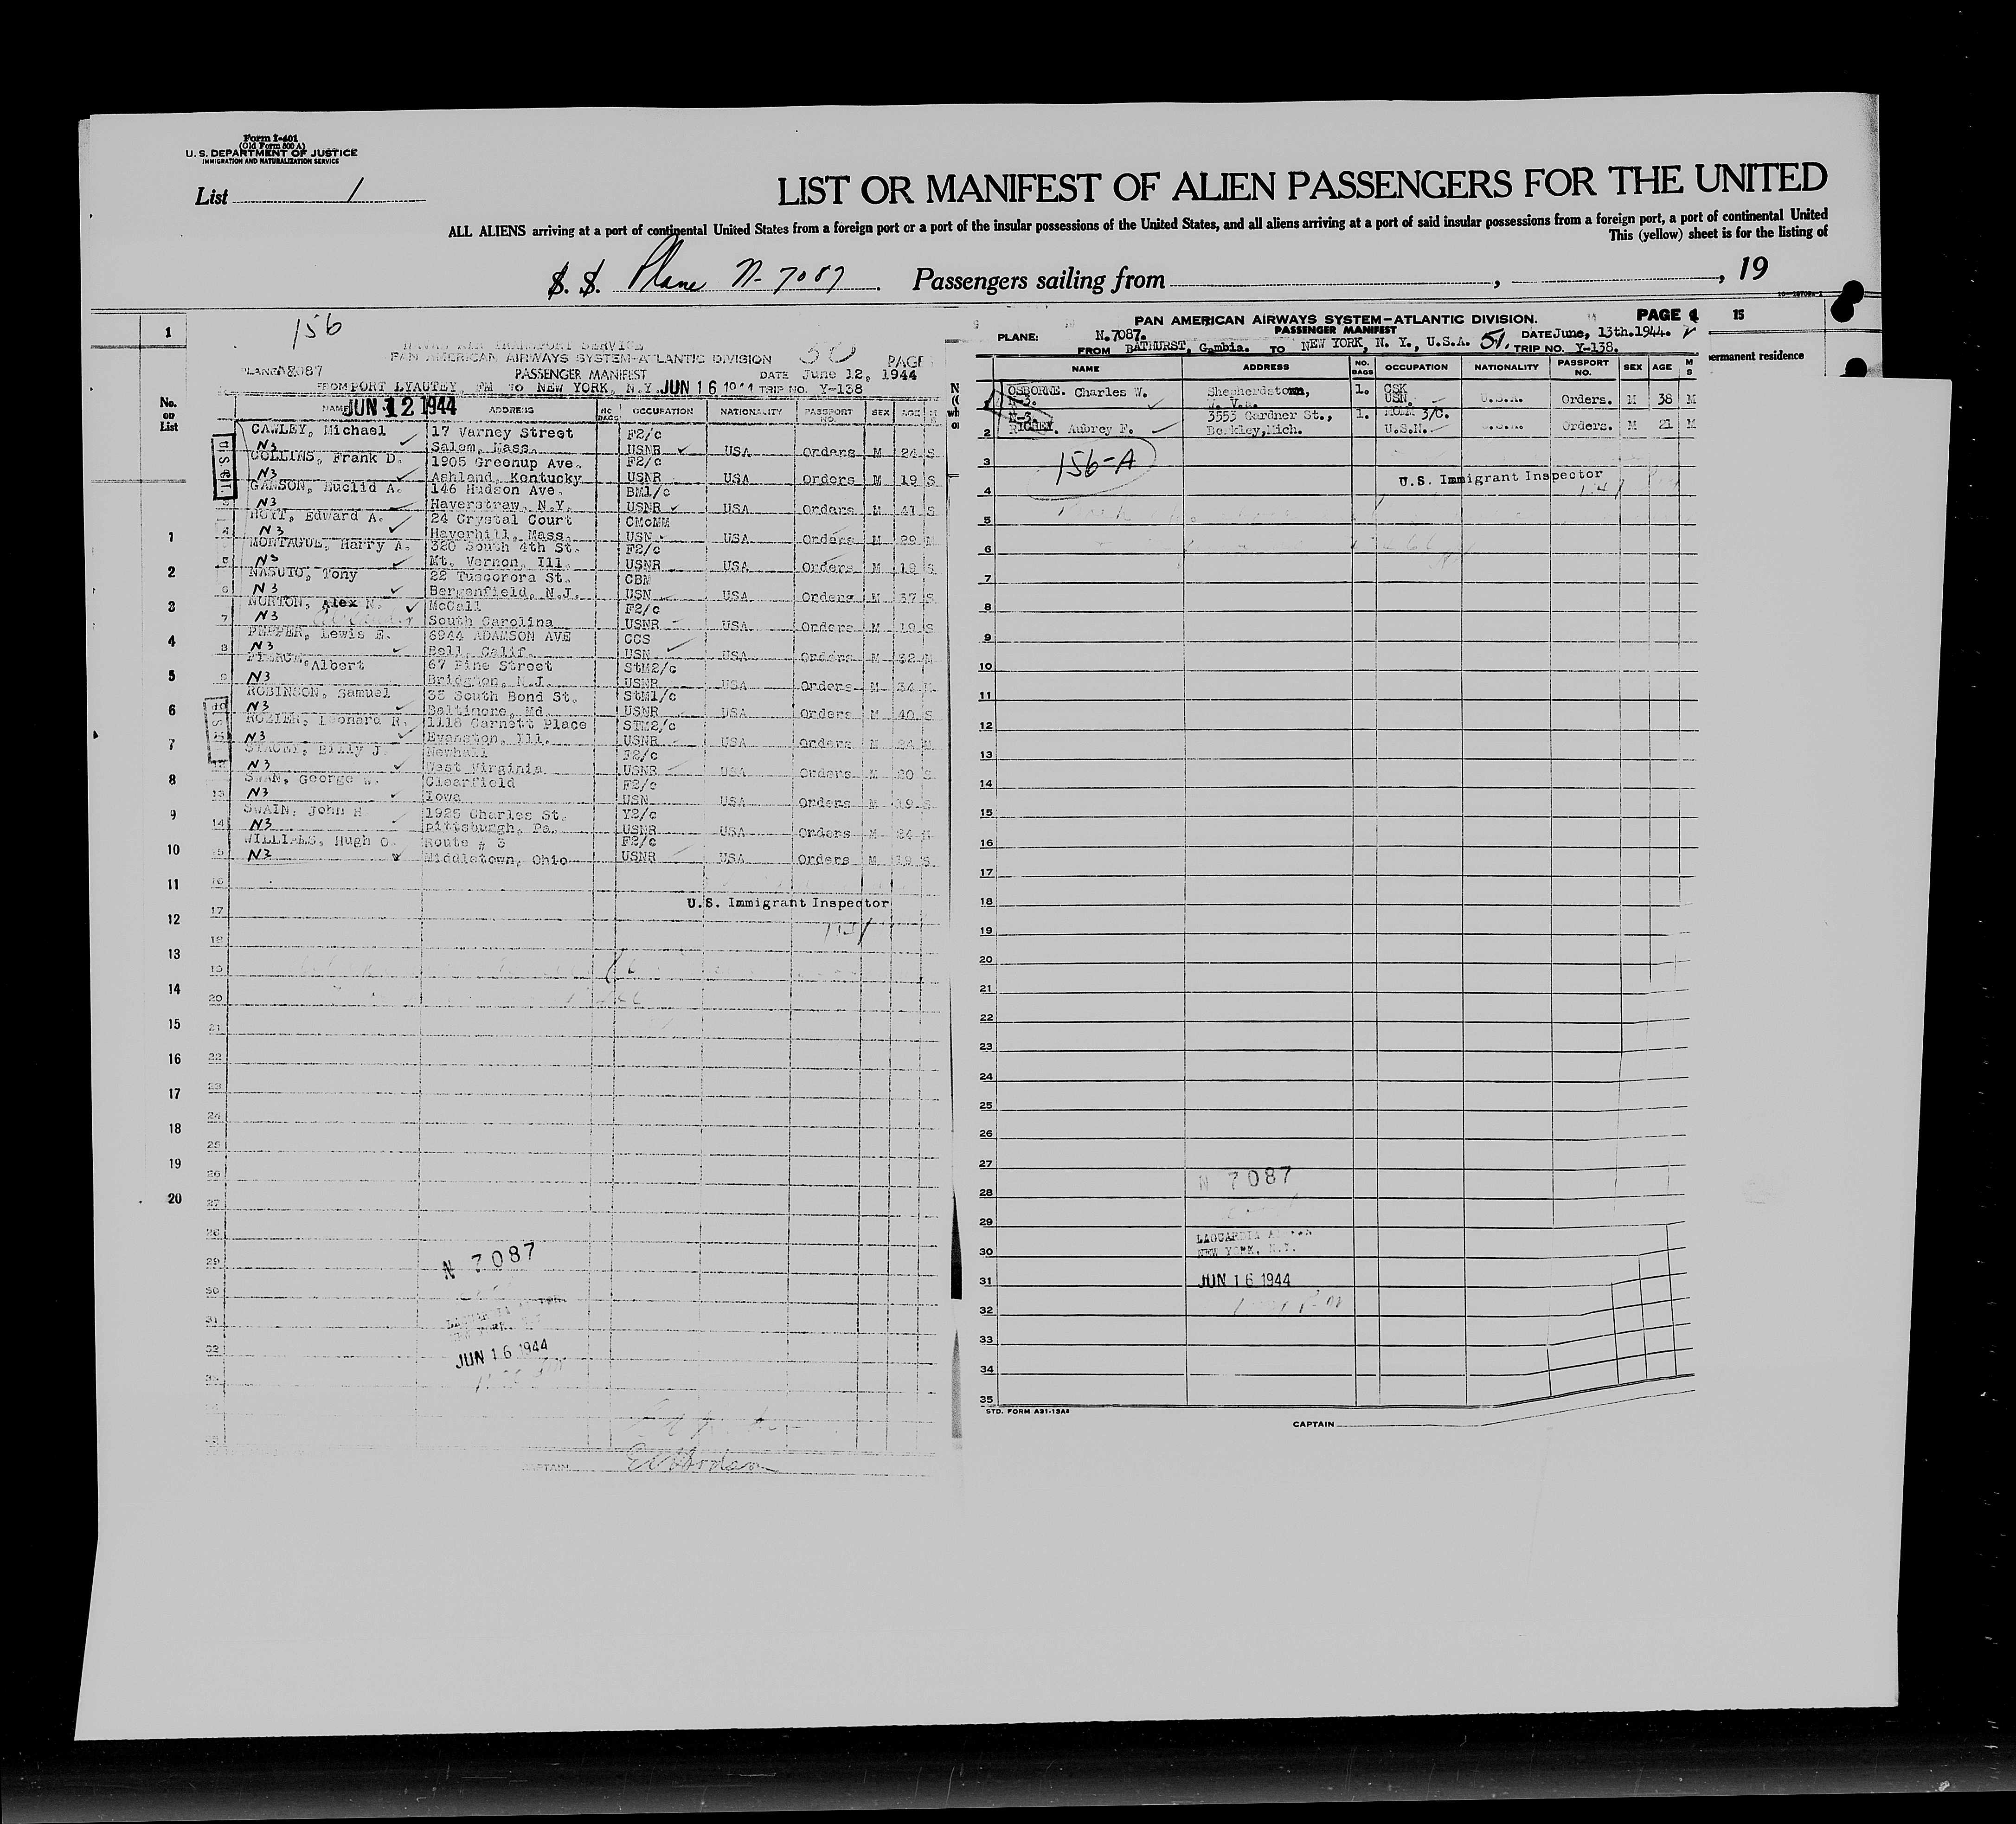 Form I-401
(Old Form 500 A)
U. S. DEPARTMENT OF JUSTICE
IMMIGRATION AND NATURALIZATION SERVICE
List 1
LIST OR MANIFEST OF ALIEN PASSENGERS FOR THE UNITED
ALL ALIENS arriving at a port of continental United States from a foreign port or a port of the insular possessions of the United States, and all aliens arriving at a port of said insular possessions from a foreign port, a port of continental United
This (yellow) sheet is for the listing of
S. S. Plane N-7087 . Passengers sailing from , , 19
1
No. on List
1
2
3
4
5
6
7
8
9
10
11
12
13
14
15
16
17
18
19
20
156
NAVAL AIR TRANSPORT SERVICE
PAN AMERICAN AIRWAYS SYSTEM-ATLANTIC DIVISION 50 PAGE
PASSENGER MANIFEST DATE June 12, 1944
FROM PORT LYAUTEY, FM TO NEW YORK, N.Y. JUN 16 1944 TRIP NO. Y-138
JUN 12 1944
NAME ADDRESS NO. BAGS OCCUPATION NATIONALITY PASSPORT NO. SEX AGE
CAWLEY, Michael 17 Varney Street F2/c
N3 Salem, Mass. USNR USA Orders M 24 S
COLLINS, Frank D. 1905 Greenup Ave. F2/c
N3 Ashland, Kentucky USNR USA Orders M 19 S
GAMSON, Euclid A. 146 Hudson Ave. BM1/c
N3 Haverstraw, N.Y. USNR USA Orders M 41 S
HOYT, Edward A. 24 Crystal Court CMoMM
4 N3 Haverhill, Mass. USN USA Orders M 29 M
MONTAGUE, Harry A. 320 South 4th St. F2/c
5 N3 Mt. Vernon, Ill. USNR USA Orders M 19 S
NASUTO, Tony 22 Tuscorora St. CBM
6 N3 Bergenfield, N.J. USN USA Orders M 37 S
NORTON, Alex N. McColl F2/c
7 N3 South Carolina USNR USA Orders M 19 S
PEPPER, Lewis E. 6944 ADAMSON AVE CCS
8 N3 Bell, Calif. USN USA Orders M 32 M
PIERCE, Albert 67 Pine Street StM2/c
9 N3 Bridgton, N.J. USNR USA Orders M 34 M
ROBINSON, Samuel 35 South Bond St. StM1/c
N3 Baltimore, Md. USNR USA Orders M 40 S
ROZIER, Leonard R. 1118 Garnett Place STM2/c
N3 Evanston, Ill. USNR USA Orders M 24 M
STACEY, Billy J. Newhall F2/c
N3 West Virginia USNR USA Orders M 20 S
SWAN, George W. Clearfield F2/c
13 N3 Iowa USN USA Orders M 19 S
SWAIN, John R 1925 Charles St. Y2/c
14 N3 pittsburgh, Pa. USNR USA Orders M 24 M
WILLIAMS, Hugh O. Route # 3 F2/c
15 N3 Middletown, Ohio USNR USA Orders M 19 S
16
17 U.S. Immigrant Inspector
18
19
20
21
22
23
24
25
26
27
28
29
30
31
32
N 7087
JUN 16 1944
CAPTAIN
PAN AMERICAN AIRWAYS SYSTEM-ATLANTIC DIVISION. PAGE 1
PLANE: N.7087. PASSENGER MANIFEST DATE June, 13th.1944.
FROM BATHURST, Gambia. TO NEW YORK, N. Y., U.S.A. 51. TRIP NO. Y-138.
NAME ADDRESS NO. BAGS OCCUPATION NATIONALITY PASSPORT NO. SEX AGE M S
OSBORNE. Charles W. Shepherdstown, 1. CSK
1 N-3. W. VA. USN. U.S.A. Orders. M 38 M
N-3. 3553 Gardner St., 1. MOMM 3/C.
2 RICHEY. Aubrey F. Berkley,Mich. U.S.N. U.S.A. Orders. M 21 M
3
156-A
U.S. Immigrant Inspector
4
5
6
7
8
9
10
11
12
13
14
15
16
17
18
19
20
21
22
23
24
25
26
27
28
29
30
31
32
33
34
35
N 7087
LAGUARDIA
NEW YORK, N.Y.
JUN 16 1944
STD. FORM A31-13A
CAPTAIN
15
ermanent residence